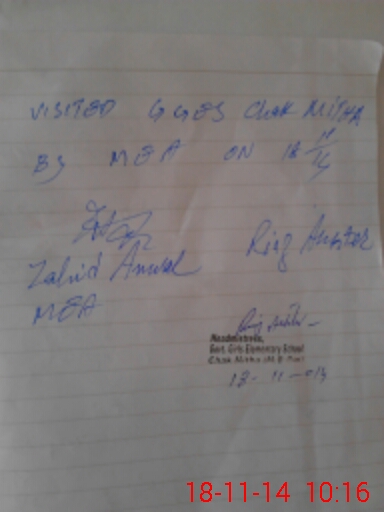 VISITED GGES Chak MITHA
By MEA ON 18 11/14
Zahid Anwar
MEA
Riaz Akhter
Headmistress,
Govt. Girls Elementary School
Chak Mitha
18-11-014
18-11-14 10:16